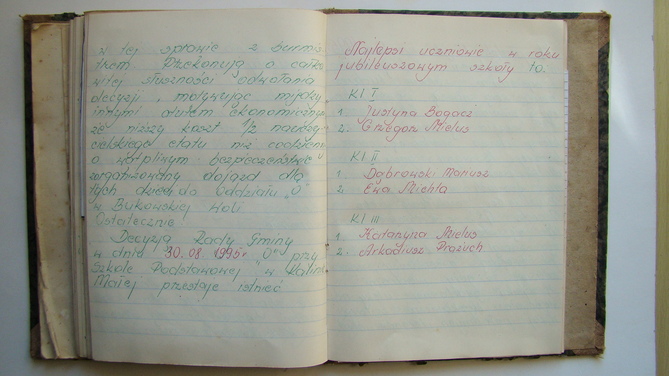 w tej sprawie z burmis
trem. Przekonują o całko
witej słuszności odwołania
decyzji, motywując między
innymi dużem ekonomicznym
że niższy koszt 1/2 nauczy
cielskiego etatu niż codzienn
o wątpliwym bezpieczeństwie
zorganizowany dojazd dla
tych dzieci do Oddziału „0"
w Bukowskiej Woli.
Ostatecznie
Decyzją Rady Gminy
w dniu 30.08.1995r „0" przy
Szkole Podstawowej w Kalinie
Małej przestaje istnieć
Najlepsi uczniowie w roku
jubileuszowym szkoły to.
Kl I
1. Justyna Bogacz
2. Grzegorz Mielus
Kl II
1. Dąbrowski Mariusz
2. Ewa Michta
Kl III
1. Katarzyna Mielus
2. Arkadiusz Prażuch